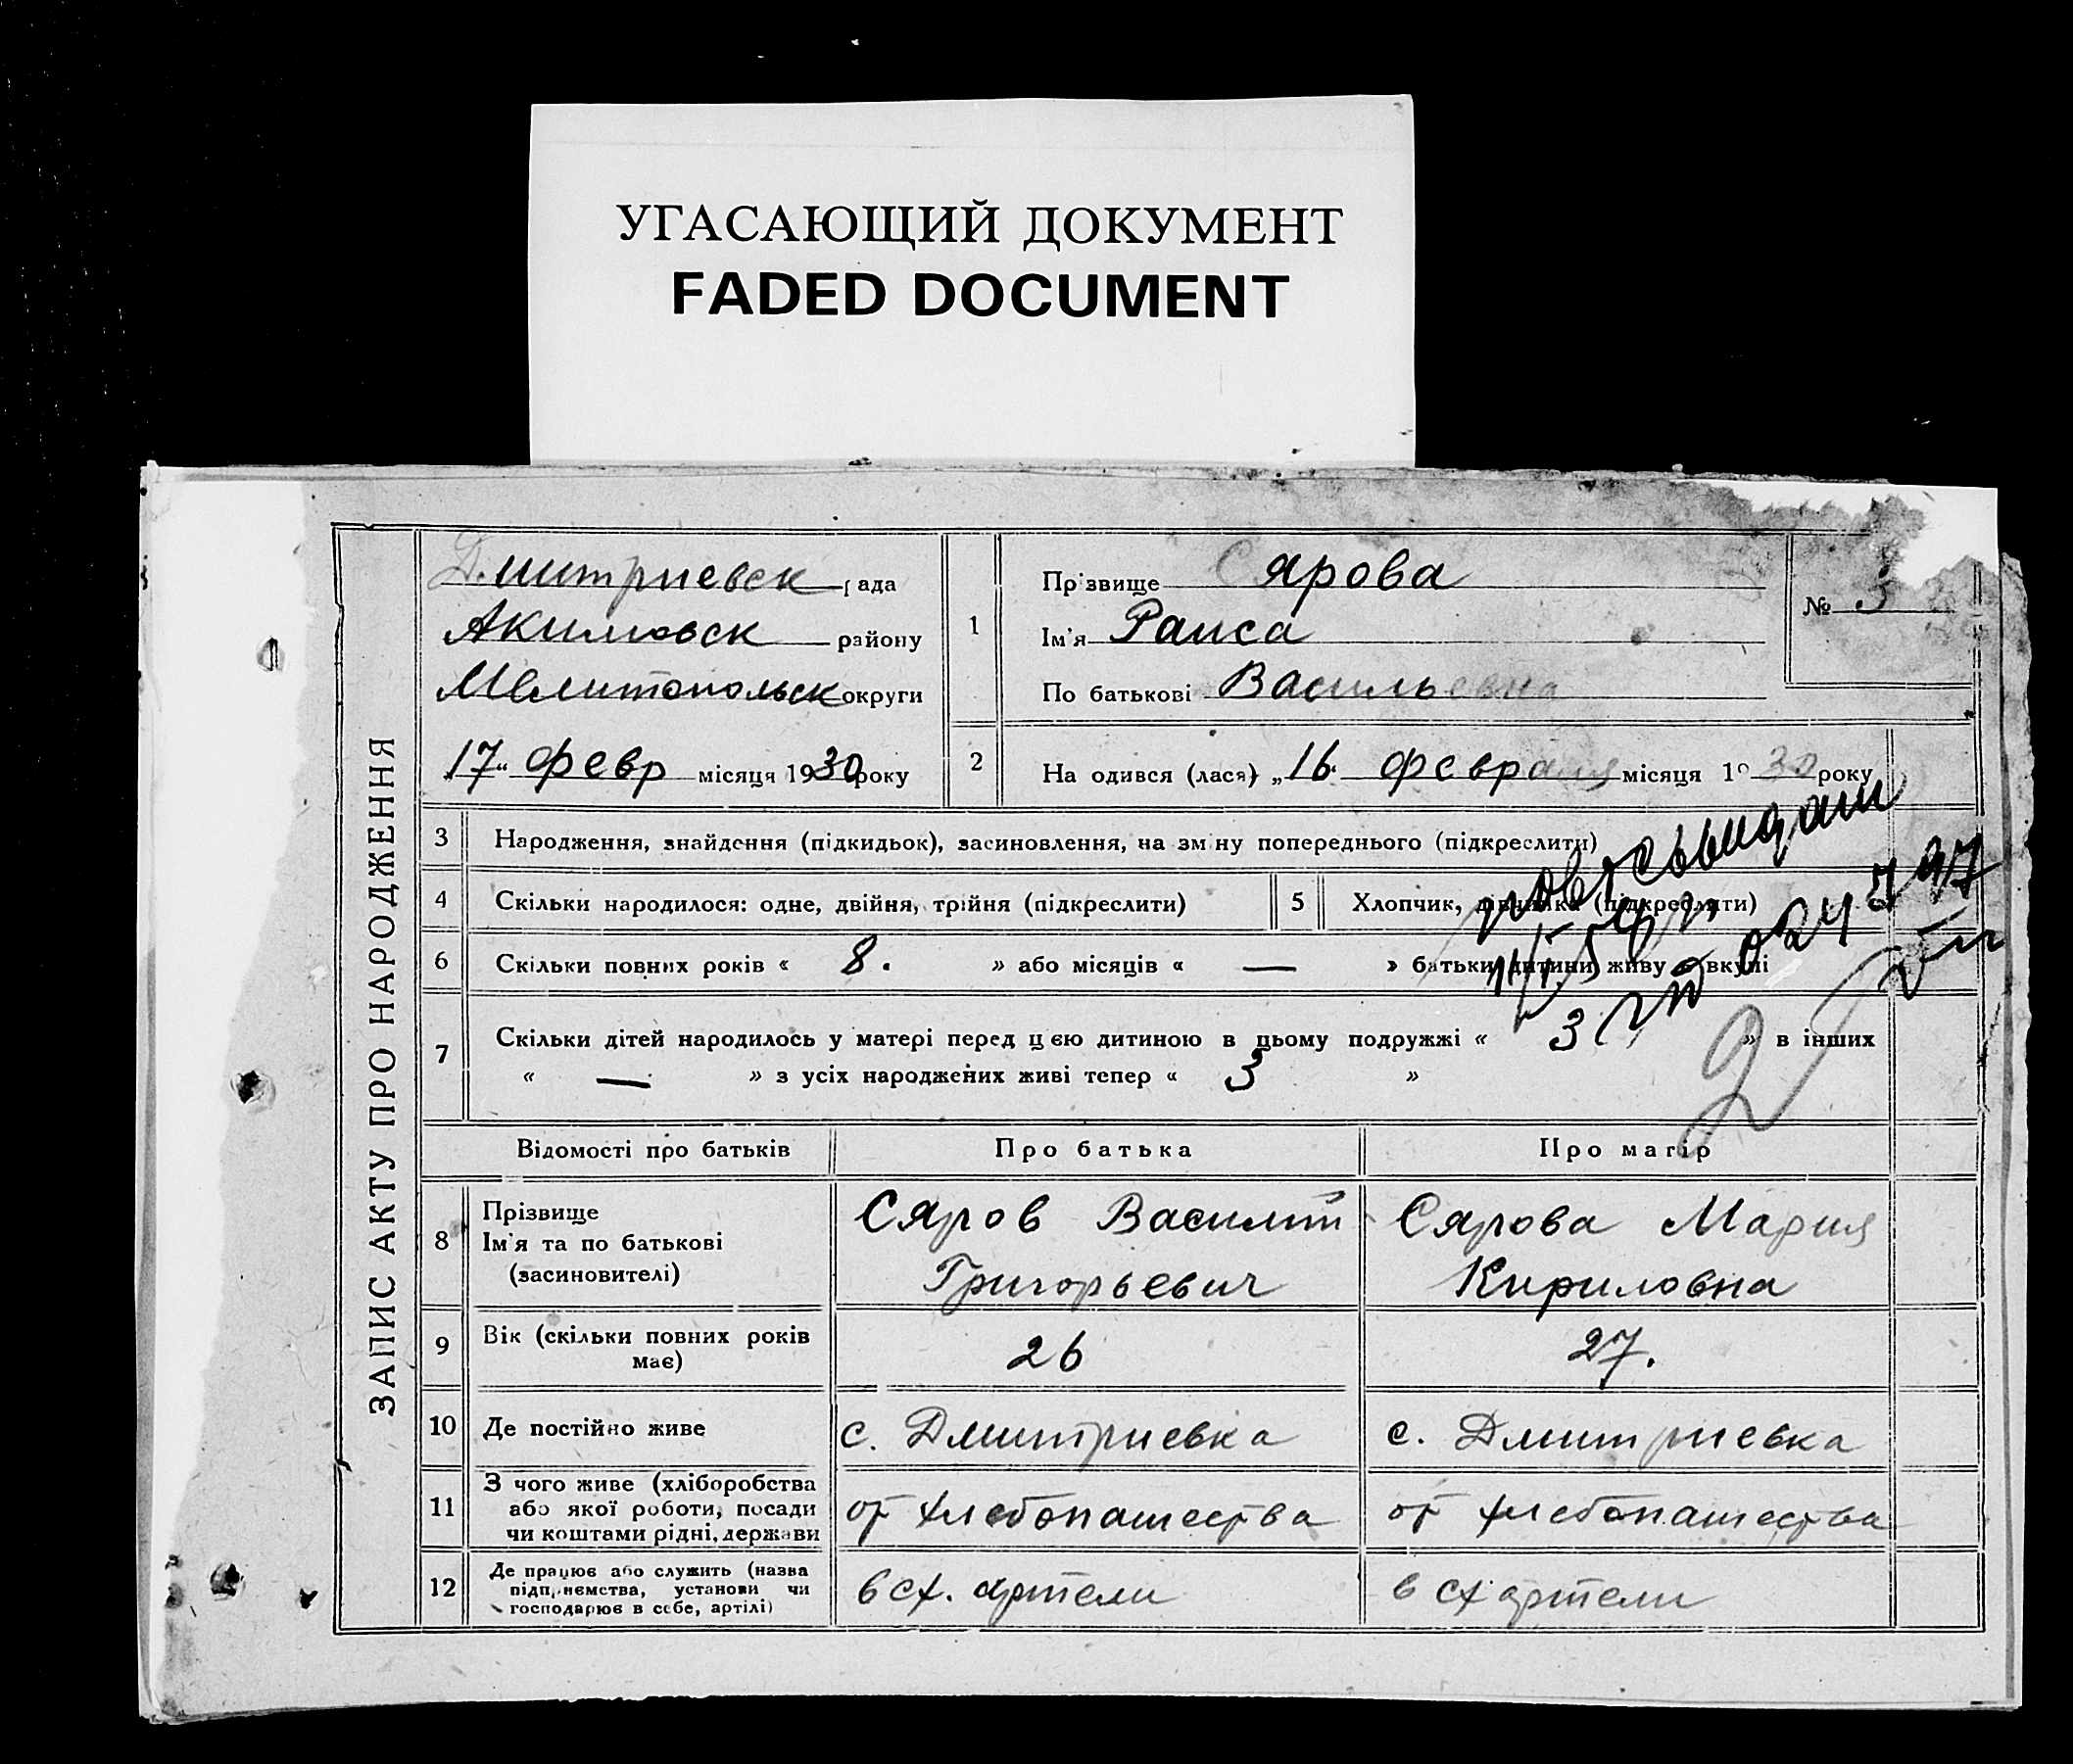 УГАСАЮЩИЙ ДОКУМЕНТ
FADED DOCUMENT
ЗАПИС АКТУ ПРО НАРОДЖЕННЯ
Дмитриевск рада
Акимовск району
Мелитопольск округи
„17“ февр місяця 1930 року
1
Прізвище Сярова
Ім'я Раиса
По батькові Васильевна
№ 3
2
На одився (лася) „16 февраля місяця 1930 року
3 Народження, знайдення (підкидьок), засиновлення, на зміну попереднього (підкреслити)
4 Скільки народилося: одне, двійня, трійня (підкреслити)
5 Хлопчик, дівчинка (підкреслити)
6 Скільки повних років « 8. » або місяців « — » батьки дитини живу вкупі
7 Скільки дітей народилось у матері перед цією дитиною в цьому подружжі « 3 » в інших
« — » з усіх народжених живі тепер « 3 »
Відомості про батьків Про батька Про матір
8 Прізвище
Ім'я та по батькові
(засиновителі)
Сяров Василий
Григорьевич
Сярова Мария
Кириловна
9 Вік (скільки повних років
має)
26
27.
10 Де постійно живе
с. Дмитриевка
с. Дмитриевка
11 З чого живе (хліборобства
або якої роботи, посади
чи коштами рідні, держави
от хлебопашества
от хлебопашества
12 Де працює або служить (назва
підприємства, установи чи
господарює в себе, артілі)
в сх. артели
в сх артели